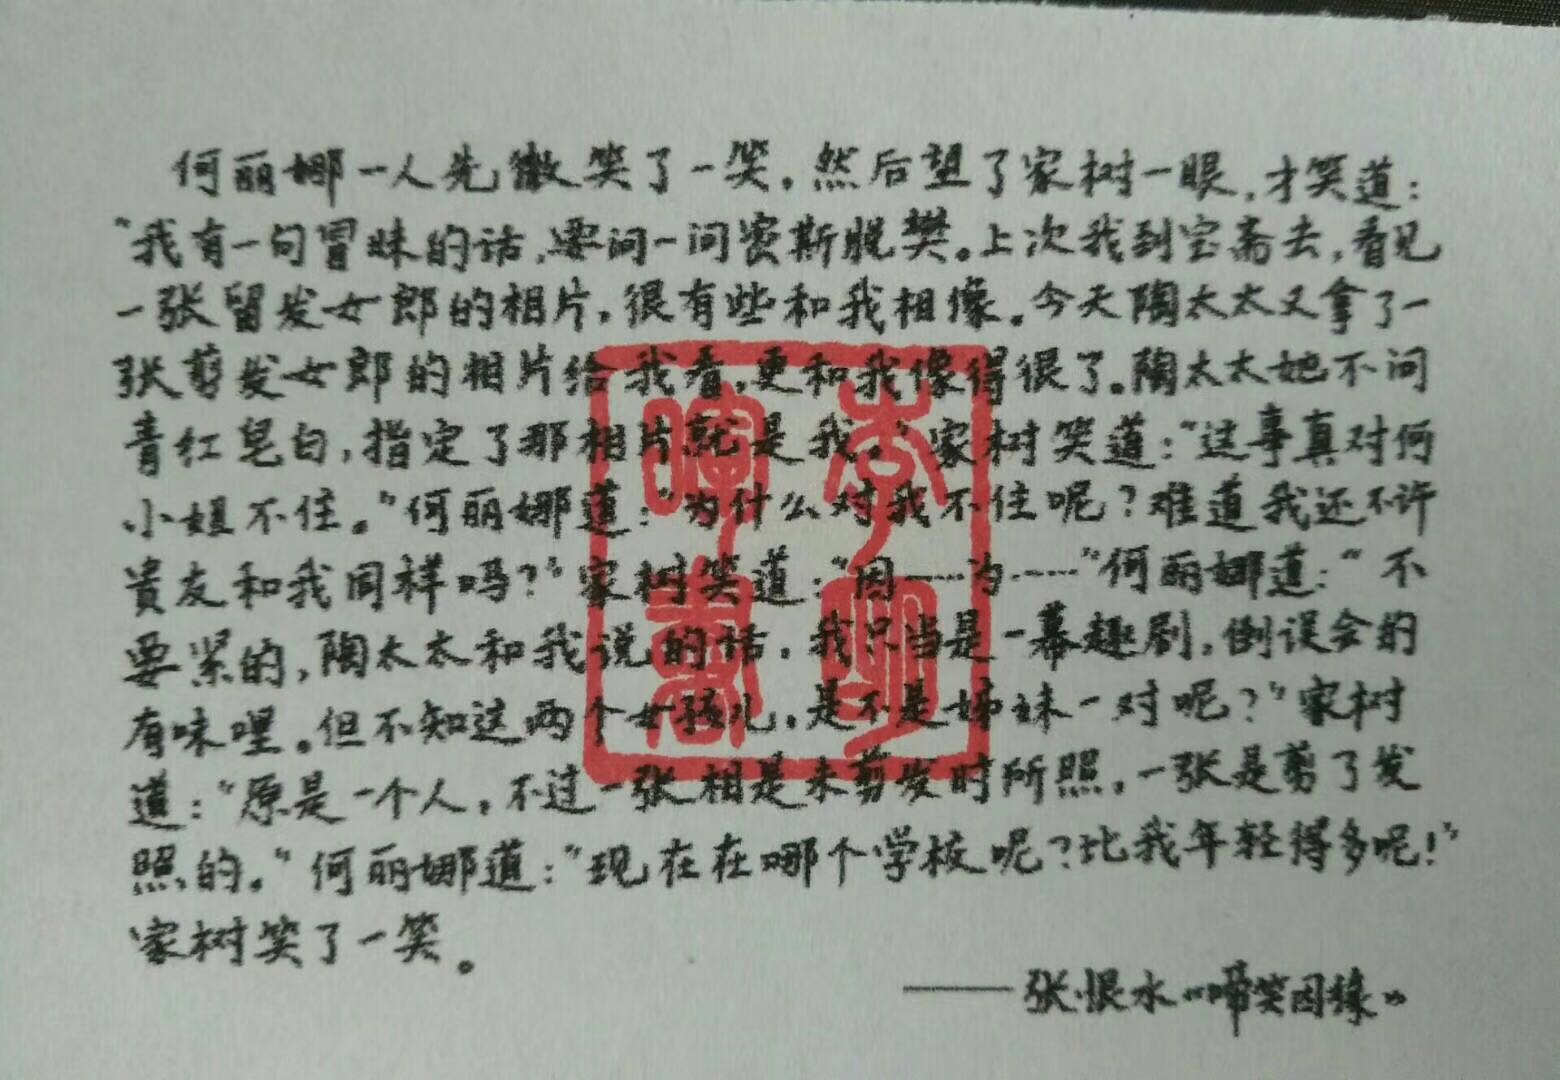 何丽娜一人先微笑了一笑，然后望了家树一眼，才笑道：
“我有一句冒昧的话，要问一问密斯脱樊。上次我到宝斋去，看见
一张留发女郎的相片，很有些和我相像。今天陶太太又拿了一
张剪发女郎的相片给我看，更和我像得很了。陶太太她不问
青红皂白，指定了那相片就是我。”家树笑道：“这事真对何
小姐不住。”何丽娜道：“为什么对我不住呢？难道我还不许
贵友和我同样吗？”家树笑道：“因……为……”何丽娜道：“不
要紧的，陶太太和我说的话，我只当是一幕趣剧，倒误会的
有味哩。但不知这两个女孩儿，是不是姊妹一对呢？”家树
道：“原是一个人，不过一张相是未剪发时所照，一张是剪了发
照的。”何丽娜道：“现在在哪个学校呢？比我年轻得多呢！”
家树笑了一笑。
——张恨水《啼笑因缘》